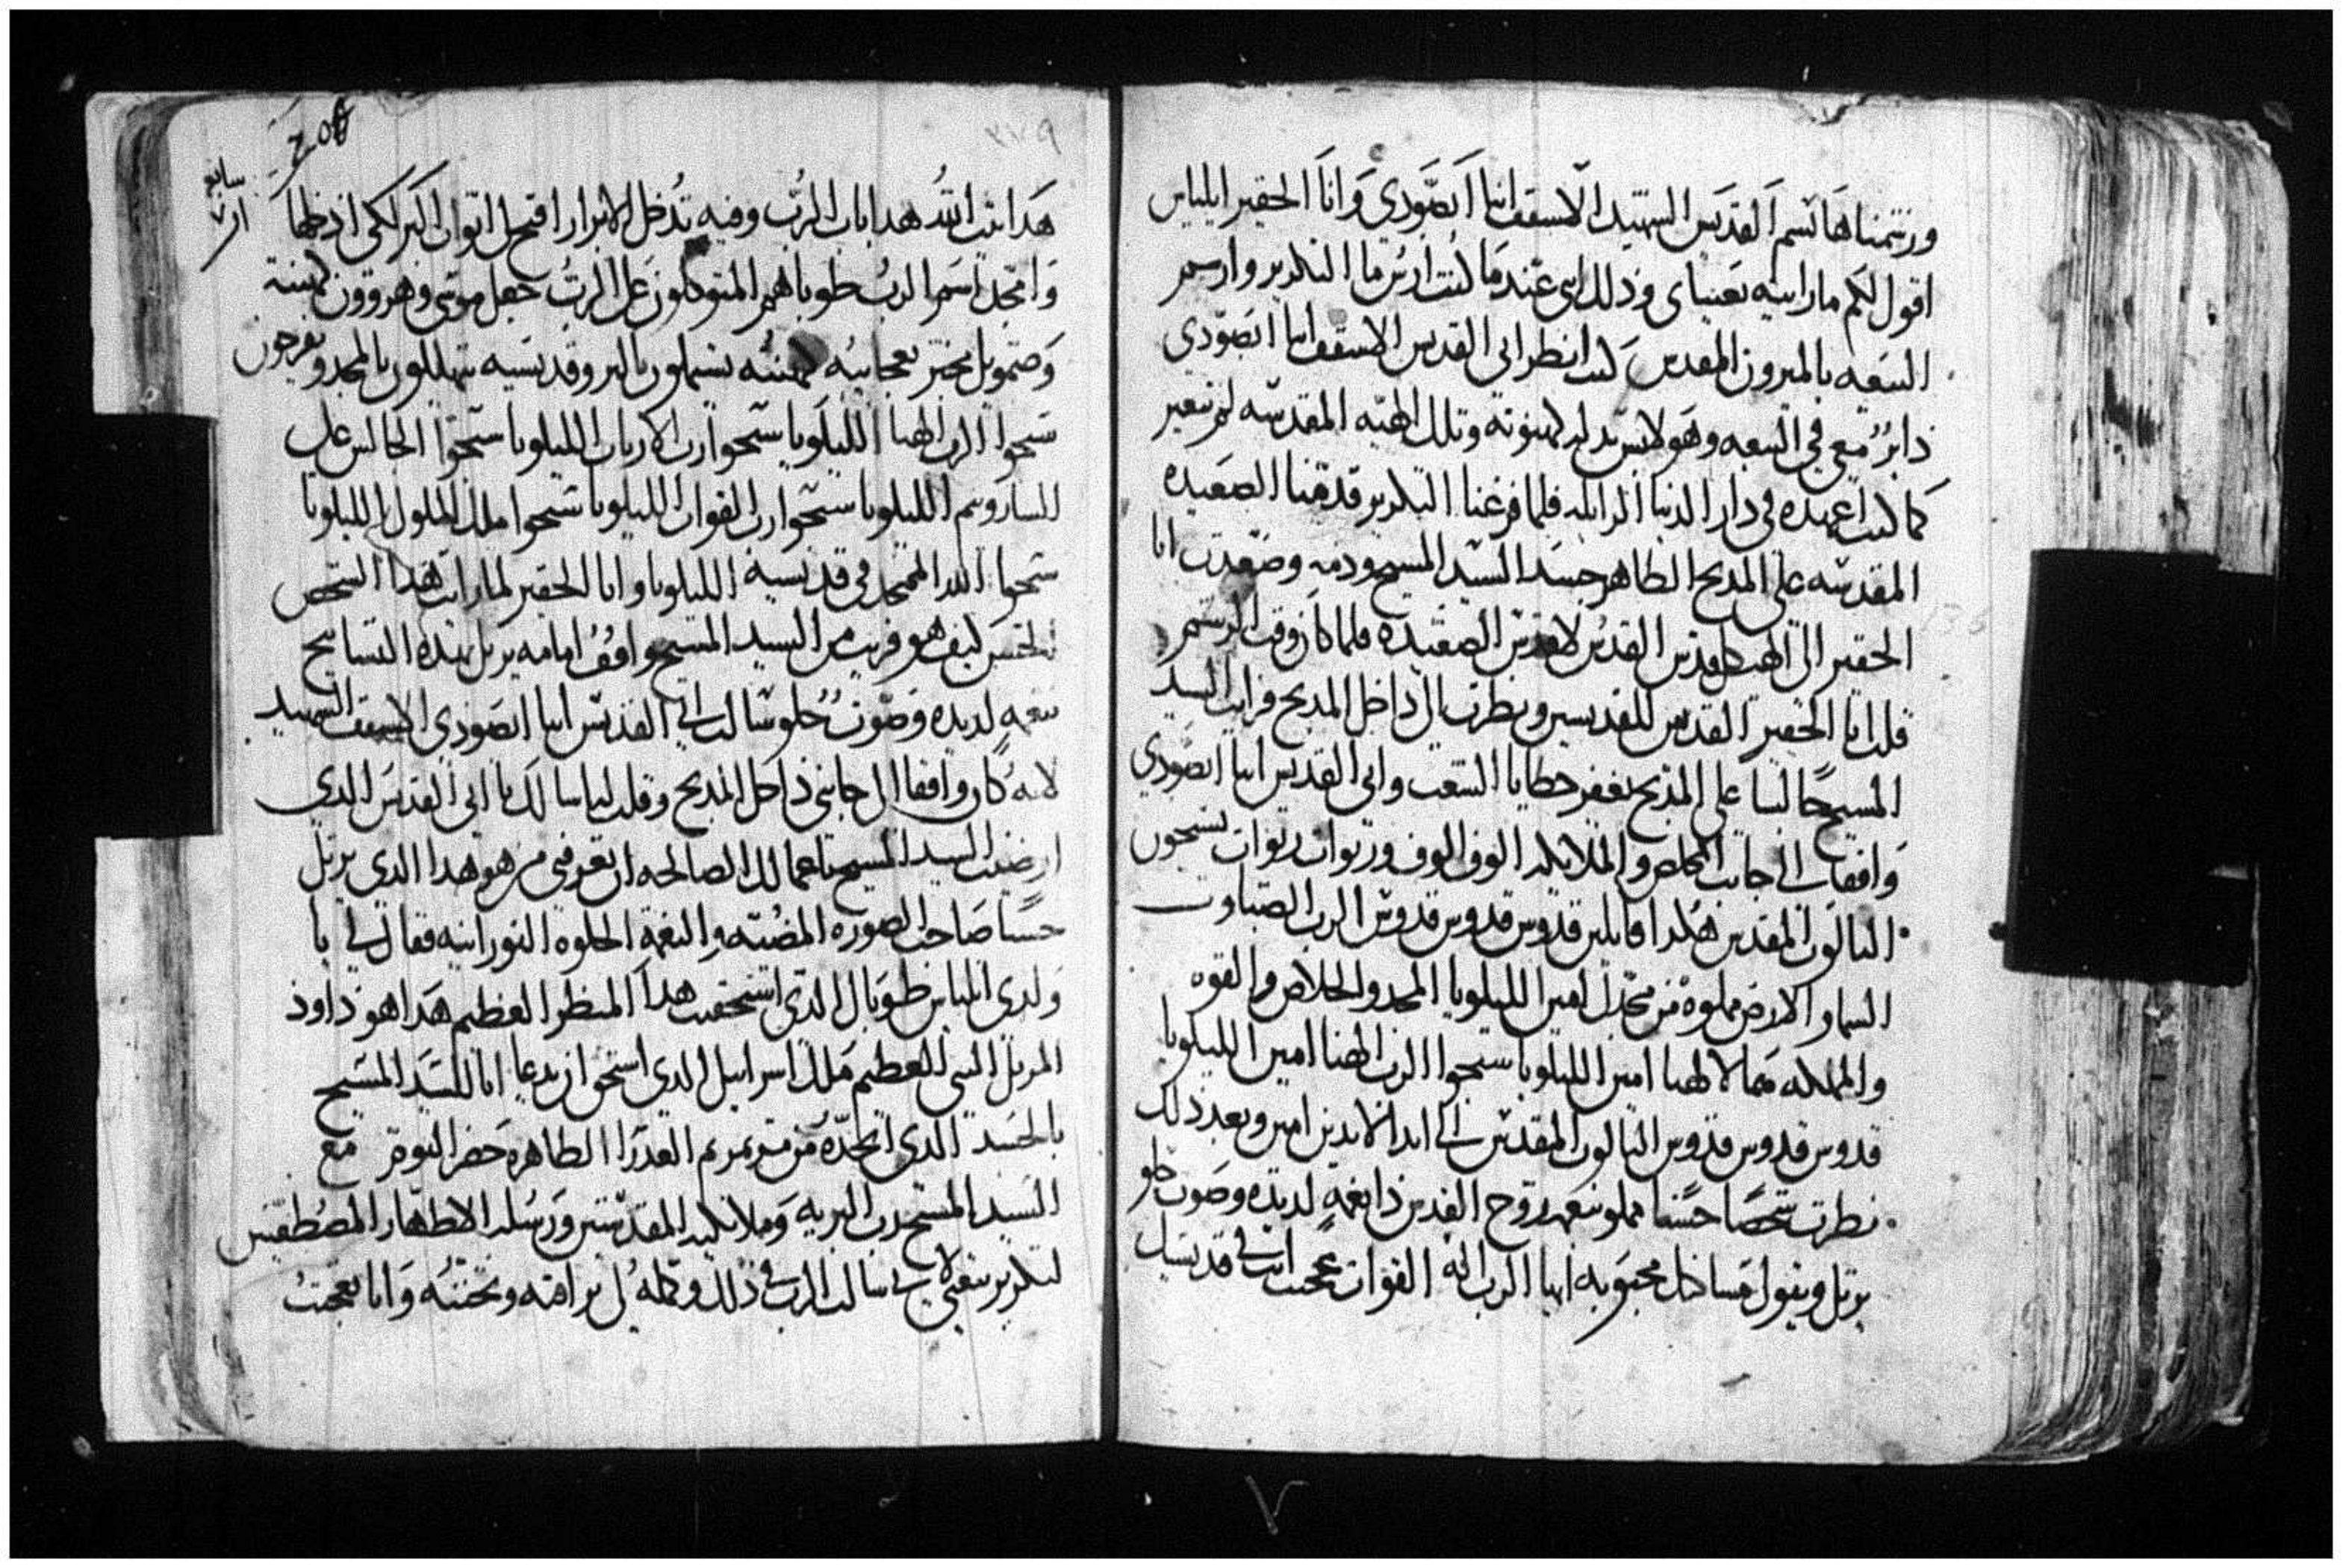 ورشمناها باسم القديس الشهيد الاسقف انبا ابصودي وانا الحقير ايلياس
اقول لكم ما راىيه بعيناي وذلك اني عندما كنت ارشم التكريز وارسم
البيعه بالميرون المقدس كنت انظر الى القديس الاسقف انبا ابصودي
داير معي في البيعه وهو لابس بدلة كهنوته وتلك الهيه المقدسه لم تتغير
كما كنت اعهده في دار الدنيا الزايله فلما فرغنا التكريز قدمنا الصعيده
المقدسه على المدبح الطاهر جسد السيد المسيح ودمه وصعدت انا
الحقير الى الهيكل قدس القدس لاقدس الصعيده فلما كان وقت الرشم
قلت انا الحقير القدس للقديسين ونظرت الى داخل المدبح فرايت السيد
المسيح جالسا على المدبح يغفر خطايا الشعب وابي القديس انبا ابصودي
واقفا الى جانب المخلص والملايكه الوف الوف وربوات ربوات يسبحون
التالوت المقدس هكدا قايلين قدوس قدوس قدوس الرب الصباوت
السما والارض مملوه من مجدك امين الليلويا المجد والخلاص والقوه
والمملكه هما لالهنا امين الليلويا سبحوا الرب الهنا امين الليلويا
قدوس قدوس قدوس التالوت المقدس الى ابد الابدين امين وبعد ذلك
نظرت شخصا حسنا مملو نعمه روح القدس ذا نغمه لديده وصوت حلو
يرتل ويقول مساكنك محبوبه ايها الرب اله القوات عجب انت في قديسيك
٣٧٩
سابع
هدا بيت الله هدا باب الرب وفيه تدخل الابرار افتح لي ابواب البر لكي ادخلها
وامجد اسم الرب طوباهم المتوكلون على الرب جعل موسى وهرون كهنته
وصمويل يخبر بعجايبه كهنته يشتملون بالبر وقديسيه يتهللون بالمجد ويفرحون
سبحوا الرب الهنا الليلويا سبحوا رب الارباب الليلويا سبحوا الجالس على
الشاروبيم الليلويا سبحوا رب القوات الليلويا سبحوا ملك الملوك الليلويا
سبحوا الله الممجد في قديسيه الليلويا وانا الحقير لما رايت هدا الشخص
الحسن كيف هو قريب من السيد المسيح واقف امامه يرتل بهده التسابيح
بنغمه لديده وصوت حلو سالت ابي القديس انبا ابصودي الاسقف الشهيد
لانه كان واقفا الى جانبي داخل المدبح وقلت له اسالك يا ابي القديس الدي
ارضيت السيد المسيح باعمالك الصالحه ان تعرفني من هو هدا الدي يرتل
حسنا صاحب الصوره المضيه والنغمه الحلوه النورانيه فقال لي يا
ولدي ايلياس طوباك الدي استحقيت هدا المنظر العظيم هدا هو داود
المرتل النبي العظيم ملك اسراييل الدي استحق ان يدعا ابا للسيد المسيح
بالجسد الدي اتخده من مرتمريم العدرا الطاهره حضر اليوم مع
السيد المسيح رب البريه وملايكته المقدسين ورسله الاطهار المصطفيين
لتكريز بيعتي لاني سالت الرب في ذلك وكمله لي برافته وتحننه وانا تعجبت